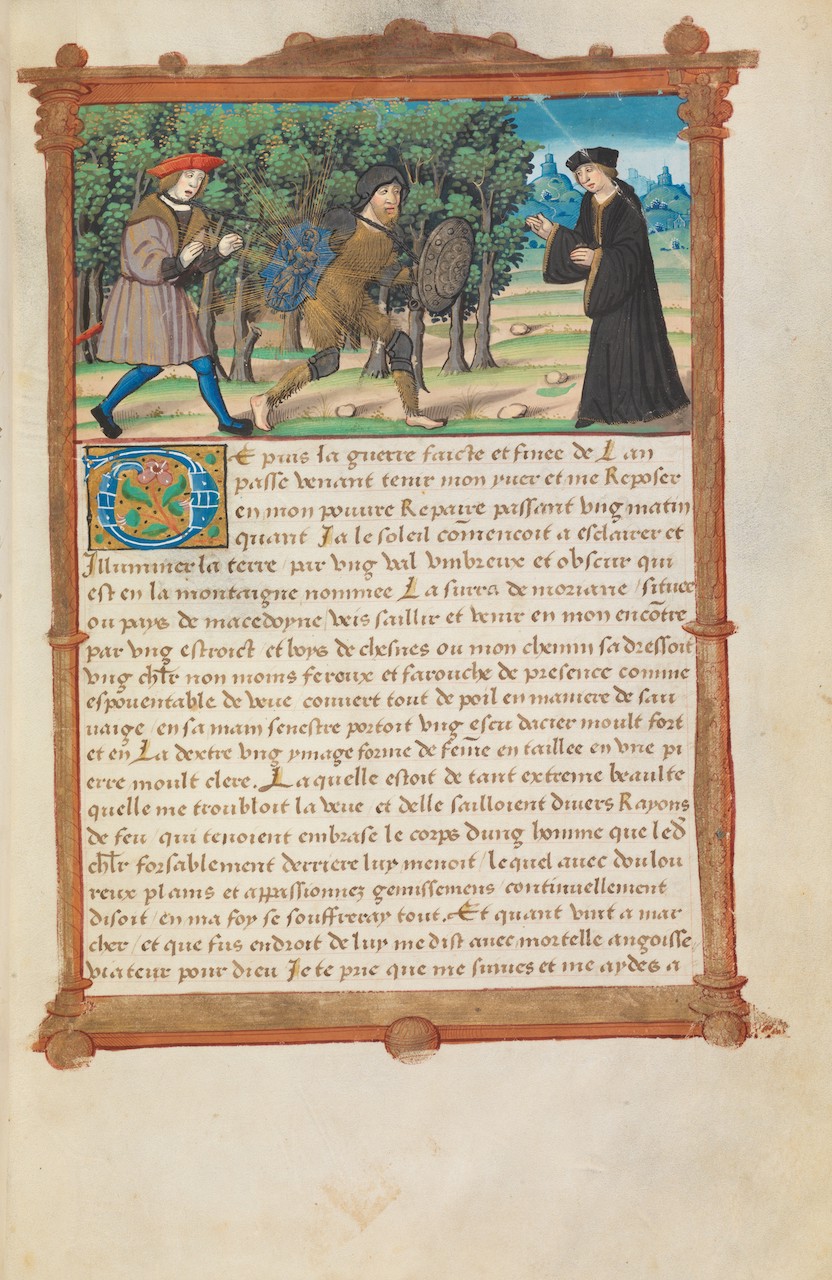 3
DEpuis la guerre faicte et finee de Lan
passe venant tenir mon yuer et me Reposer
en mon pouure Repaire passant vng matin
quant Ja le soleil cōmencoit a esclairer et
Jlluminer la terre / par vng val vmbreux et obscur qui
est en la montaigne nommee La surra de moriane / situee
ou pays de macedoyne / veis saillir et venir en mon encōtre
par vng estroict / et boys de chesnes ou mon chemin sadressoit
vng chl̄r non moins fereux et farouche de presence comme
espouentable de veue / couuert tout de poil en maniere de sau
uaige / en sa main senestre portoit vng escu dacier moult fort
et en La dextre vng ymage forme de fēme entaillee en vne pi
erre moult clere. Laquelle estoit de tant extreme beaulte
quelle me troubloit la veue / et delle sailloient diuers Rayons
de feu / qui tenoient embrase le corps dung homme que led̄
chl̄r forsablement derriere luy menoit / lequel auec doulou
reux plains et appassionnez gemissemens / continuellement
disoit / en ma foy se souffreray tout. Et quant vint a mar
cher / et que fus endroit de luy me dist auec mortelle angoisse
viateur pour dieu Je te prie que me suiues et me aydes a